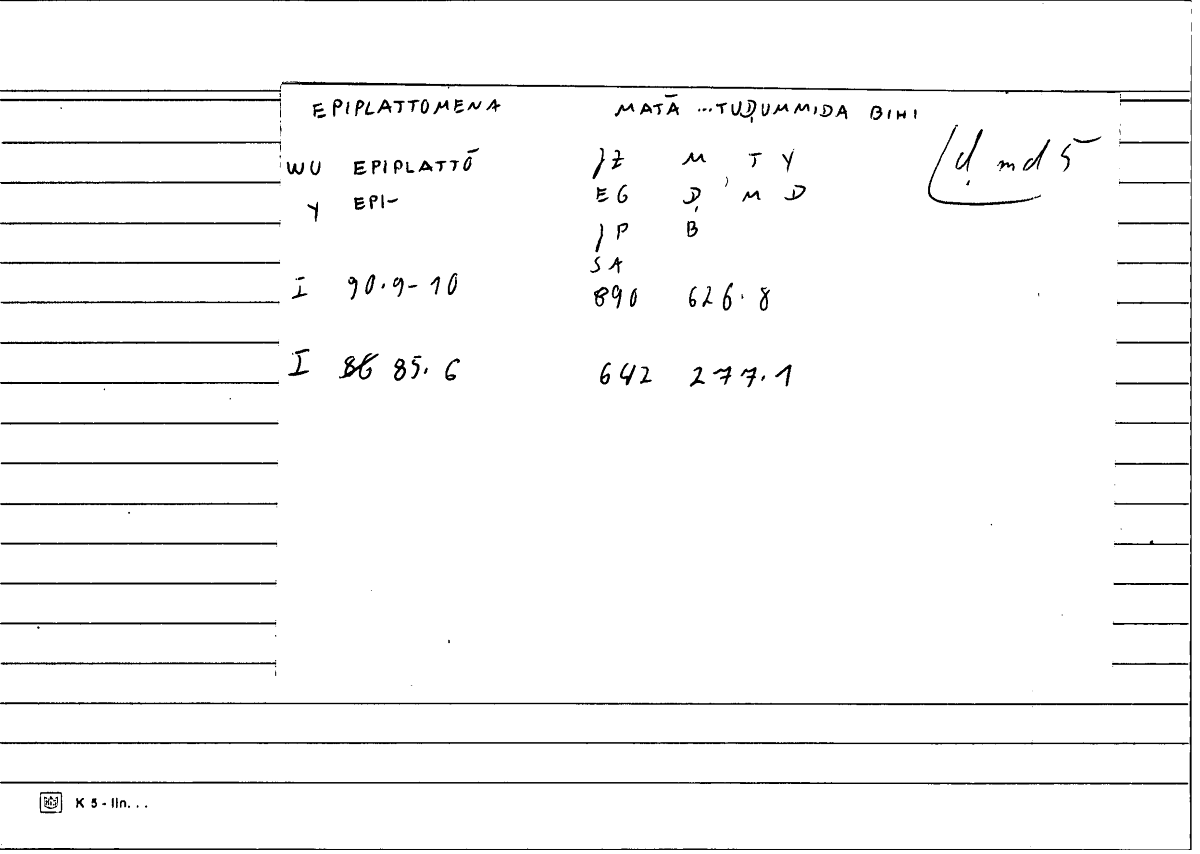 EPIPLATTOMENA MATĀ ...TUḌUMMIDA BIHI
WU EPIPLATTŌ JZ M T Y ḍ md 5
Y EPI- EG Ḍ, M D
JP B
SA
I 90.9-10 890 626.8
I 86 85.6 642 277.1
K 5 - lin...